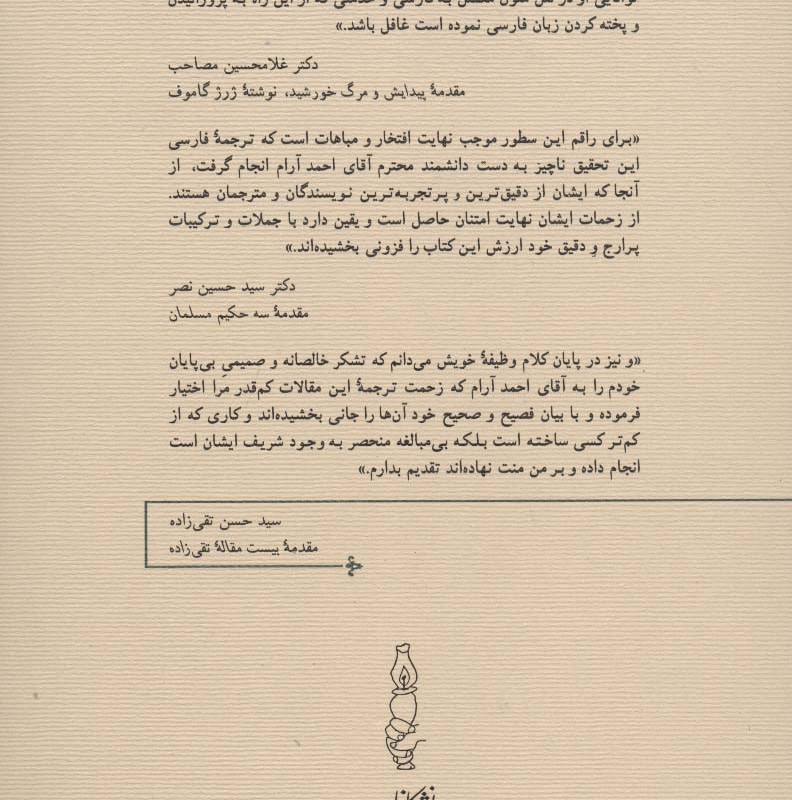 و پخته کردن زبان فارسی نموده است غافل باشد.»
دکتر غلامحسین مصاحب
مقدمهٔ پیدایش و مرگ خورشید، نوشتهٔ ژرژ گاموف
«برای راقم این سطور موجب نهایت افتخار و مباهات است که ترجمهٔ فارسی
این تحقیق ناچیز به دست دانشمند محترم آقای احمد آرام انجام گرفت، از
آنجا که ایشان از دقیق‌ترین و پرتجربه‌ترین نویسندگان و مترجمان هستند.
از زحمات ایشان نهایت امتنان حاصل است و یقین دارد با جملات و ترکیبات
پرارج و دقیق خود ارزش این کتاب را فزونی بخشیده‌اند.»
دکتر سید حسین نصر
مقدمهٔ سه حکیم مسلمان
«و نیز در پایان کلام وظیفهٔ خویش می‌دانم که تشکر خالصانه و صمیمیِ بی‌پایان
خودم را به آقای احمد آرام که زحمت ترجمهٔ این مقالات کم‌قدر مَرا اختیار
فرموده و با بیان فصیح و صحیح خود آن‌ها را جانی بخشیده‌اند و کاری که از
کم‌تر کسی ساخته است بلکه بی‌مبالغه منحصر به وجود شریف ایشان است
انجام داده و بر من منت نهاده‌اند تقدیم بدارم.»
سید حسن تقی‌زاده
مقدمهٔ بیست مقالهٔ تقی‌زاده